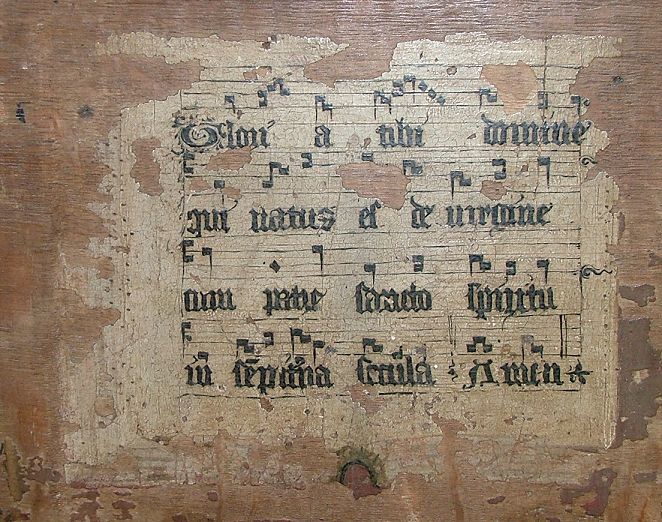 Glori a tibi domine
qui natus es de virgine
cum patre sancto spiritu
in sēpit'na secula Amen